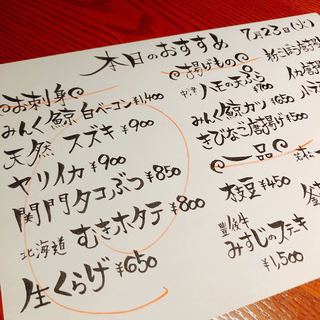 本日のおすすめ
7月23日(火)
お刺身
みんく鯨 白ベーコン ¥1,400
天然 スズキ ¥900
ヤリイカ ¥900
関門タコぶつ ¥850
北海道 むきホタテ ¥800
生くらげ ¥650
揚げもの
中津 ハモの天ぷら ¥700
みんく鯨カツ ¥650
きびなご唐揚げ ¥500
一品
枝豆 ¥450
豊後牛
みすじのステキ
¥1,500
イカ唐揚